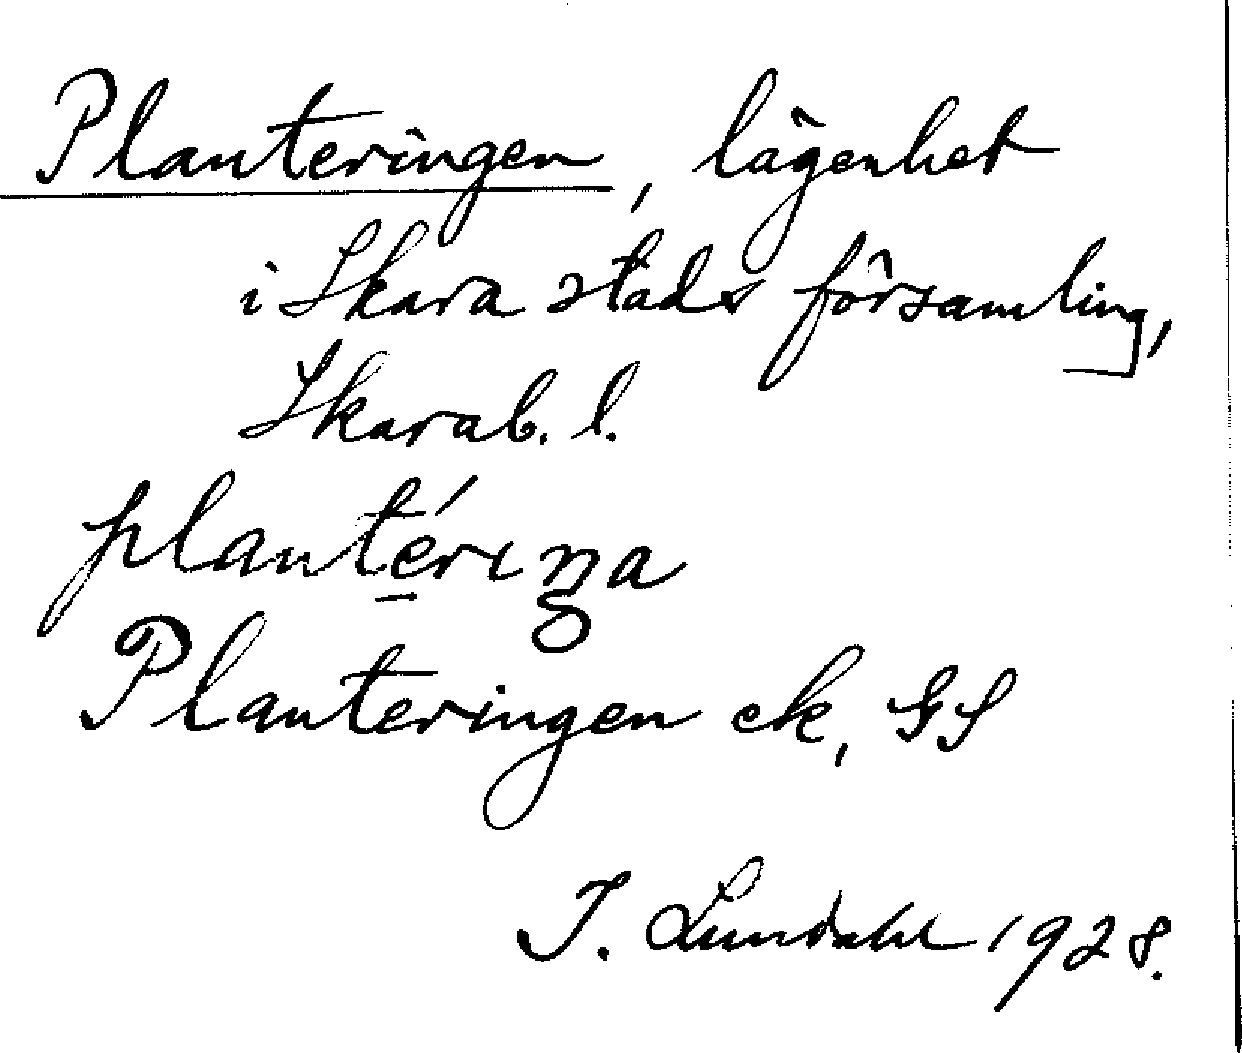 Planteringen, lägenhet
i Skara stads församling,
Skarab. l.
plantérıŋa
Planteringen ek, GS
I. Lundahl 1928.